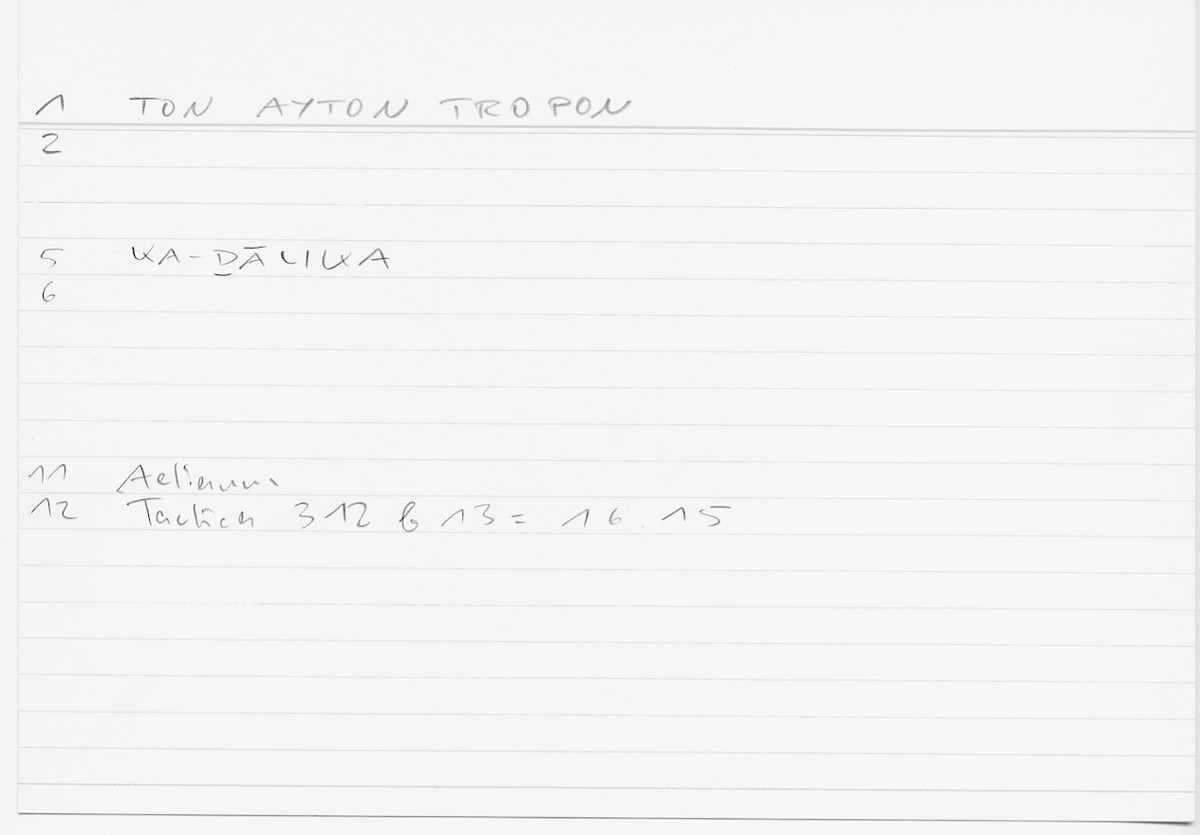 1 TON AYTON TROPON
2
5 KA-ḎĀLIKA
6
11 Aelianus
12 Tactica 312 b 13 = 16.15